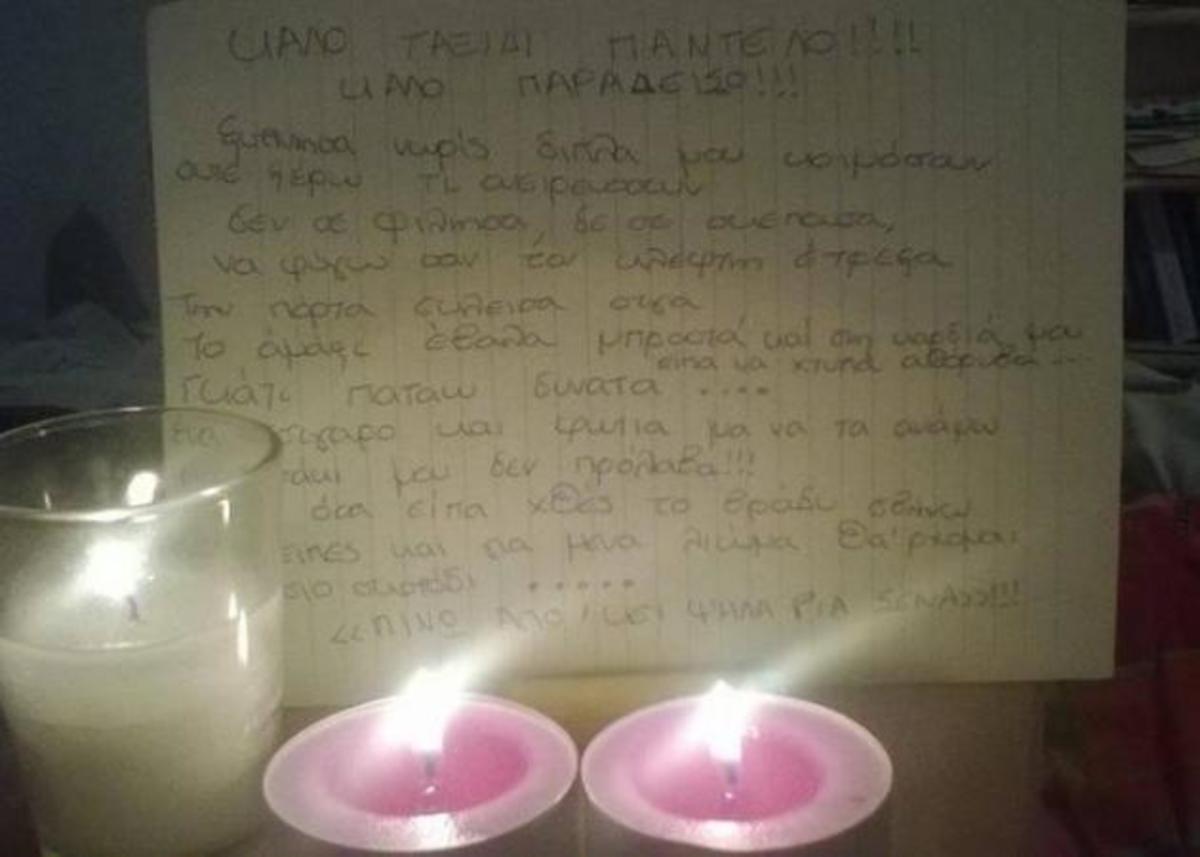 ΚΑΛΟ ΤΑΞΙΔΙ ΠΑΝΤΕΛΟ!!!!
ΚΑΛΟ ΠΑΡΑΔΕΙΣΟ!!!
ξυπνησα νωρίς διπλα μου κοιμόσουν
ουτε ξέρω τι ονειρευοσουν
δεν σε φιλησα, δε σε σκεπασα,
να φύγω σαν τον κλεφτη έτρεξα
Την πορτα εκλεισα σιγα
Το αμάξι έβαλα μπροστά και στη καρδιά μου
ειπα να χτυπά αθορυβα ...
Γκάζι παταω δυνατα ....
τσιγαρο και φωτια μα να τα αναψω
μου δεν πρόλαβα!!!
όσα είπα χθες το βράδυ σβηνω
ειπες και για μενα λιωμα θα'ρχομαι
στο σκοτάδι .....
<<ΠΙΝΩ ΑΠΟ 'ΚΕΙ ΨΗΛΑ ΓΙΑ ΣΕΝΑ>>!!!